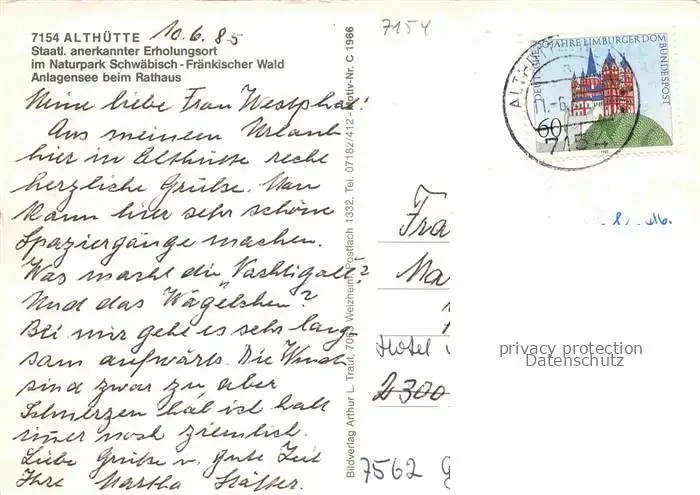 7154 ALTHÜTTE 10.6.85
Staatl. anerkannter Erholungsort
im Naturpark Schwäbisch-Fränkischer Wald
Anlagensee beim Rathaus
Meine liebe Frau Westphal!
Aus meinem Urlaub
hier in Althütte recht
herzliche Grüße. Man
kann hier sehr schöne
Spaziergänge machen.
Was macht die "Nachtigall?
Und das "Wägelchen"?
Bei mir geht es sehr lang-
sam aufwärts. Die Wunden
sind zwar zu, aber
Schmerzen hab ich halt
immer noch ziemlich.
Liebe Grüße u. gute Zeit
Ihre Martha
Bildverlag Arthur L. Traut, 7063 Welzheim, Postfach 1332, Tel. 07182/412 - Motiv-Nr. C 1966
7154
750 JAHRE LIMBURGER DOM
DEUTSCHE BUNDESPOST
60
ALTHÜTTE
7154
Fra
Ma
Hotel
2300
7562 G
privacy protection
Datenschutz